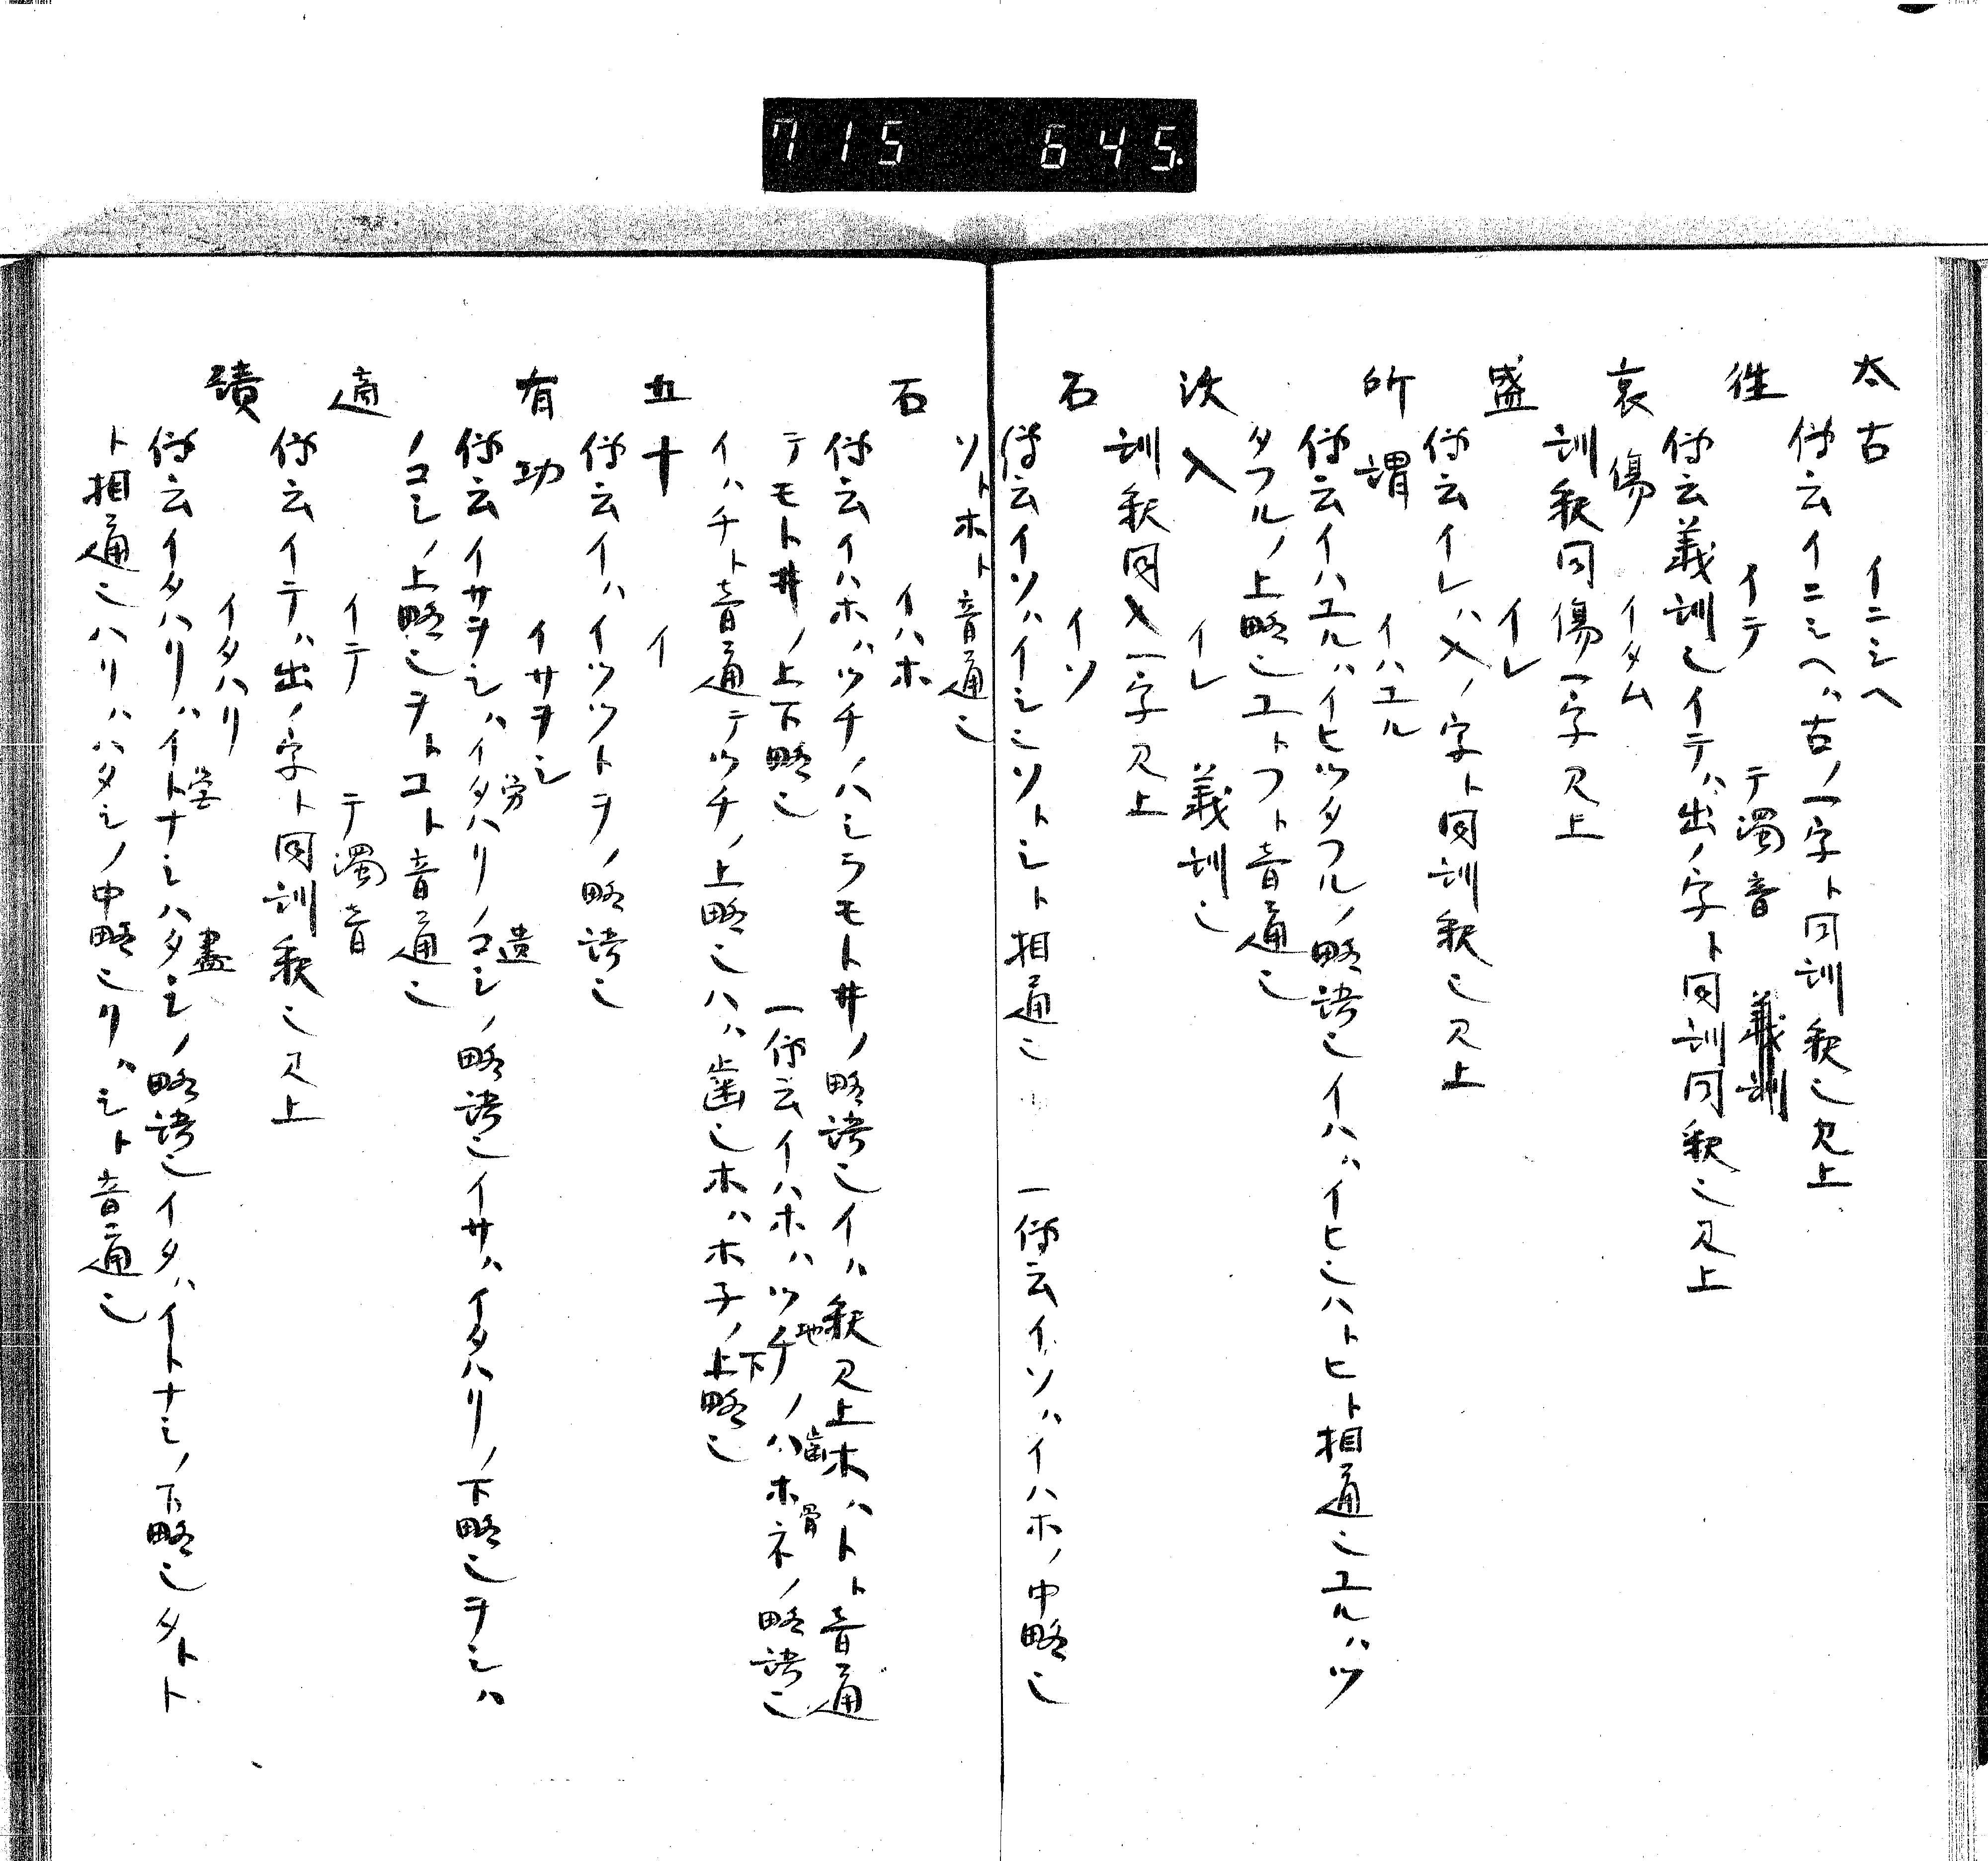 715 645.
太古 イニシヘ
師云イニシヘハ古ノ一字ト同訓釈也見上
往 イテ テ濁音 義訓
師云義訓也イテハ出ノ字ト同訓同釈也見上
哀傷 イタム
訓釈同傷一字見上
盛 イレ
師云イレハ入ノ字ト同訓釈也見上
所謂 イハユル
師云イハユルハイヒツタフルノ略語也イハハイヒ也ハトヒト相通也ユルハツ
タフルノ上略也ユトフト音通也
次入 イレ 義訓也
訓釈同入一字見上
石 イソ
師云イソハイシ也ソトシト相通也 一師云イソハイハホノ中略也
ソトホト音通也
石 イハホ
師云イハホハツチノハシラモトヰノ略語也イハ釈見上ホハトト音通
テモトヰノ上下略也 一師云イハホハツチ地ノハ歯ホネ骨ノ略語也
イハチト音通テツチノ上略也ハハ歯也ホハホ子ノ上下略也
五十 イ
師云イハイツツトヲノ略語也
有功 イサヲシ
師云イサヲシハイタハリ労ノコシ遺ノ略語也イサハイタハリノ下略也ヲシハ
ノコシノ上略也ヲトコト音通也
適 イテ テ濁音
師云イテハ出ノ字ト同訓釈也見上
績 イタハリ
師云イタハリハイトナシ営ハタシ尽ノ略語也イタハイトナシノ下略也タトト
ト相通也ハリハハタシノ中略也リハシト音通也